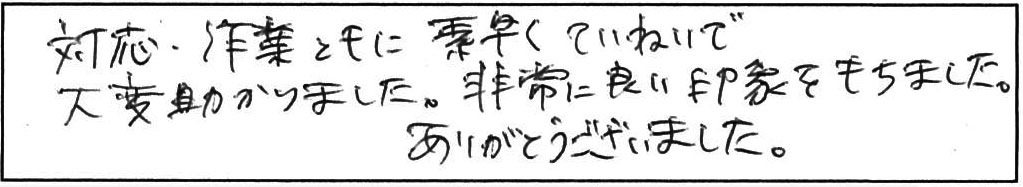 対応・作業ともに 素早く ていねいで
大変助かりました。非常に良い印象をもちました。
ありがとうございました。